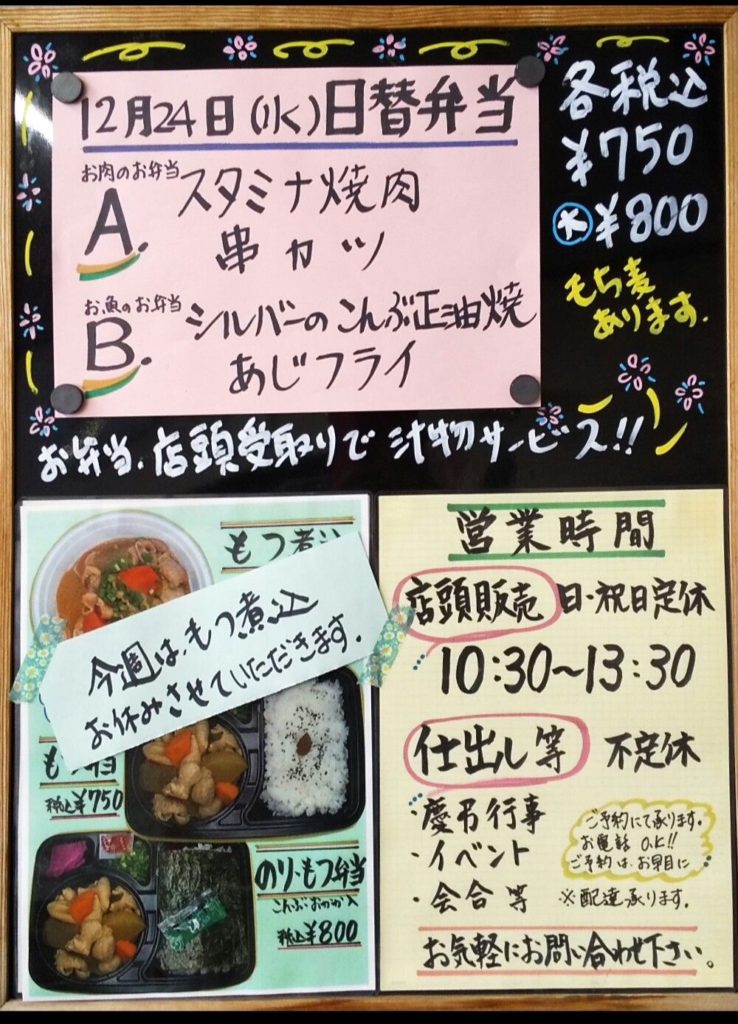 12月24日(水)日替弁当
お肉のお弁当
A.
スタミナ焼肉
串カツ
お魚のお弁当
B.
シルバーのこんぶ正油焼
あじフライ
各税込
¥750
大 ¥800
もち麦
あります.
お弁当.店頭受取りで 汁物サービス!!
もつ煮込
今週は、もつ煮込
お休みさせていただきます.
弁当
税込¥750
のり・もつ弁当
こんぶ・おかか入
税込¥800
営業時間
店頭販売 日・祝日定休
10:30~13:30
仕出し等 不定休
・慶弔行事
・イベント
・会合等
ご予約にて承ります.
お電話 O.K!!
ご予約は、お早目に
※配達承ります.
お気軽にお問い合わせ下さい。